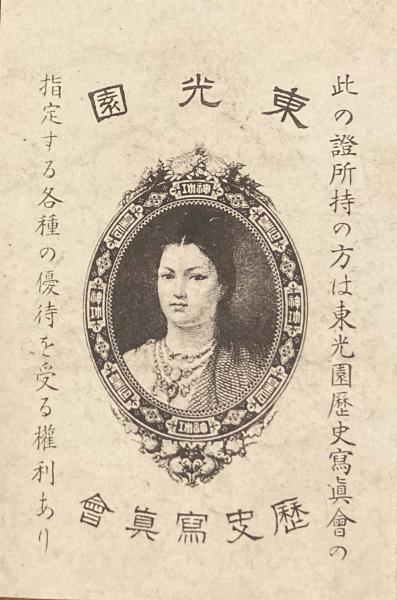 東光園
此の證所持の方は東光園歷史寫眞會の
指定する各種の優待を受る權利あり
神功
神功
歷史寫眞會